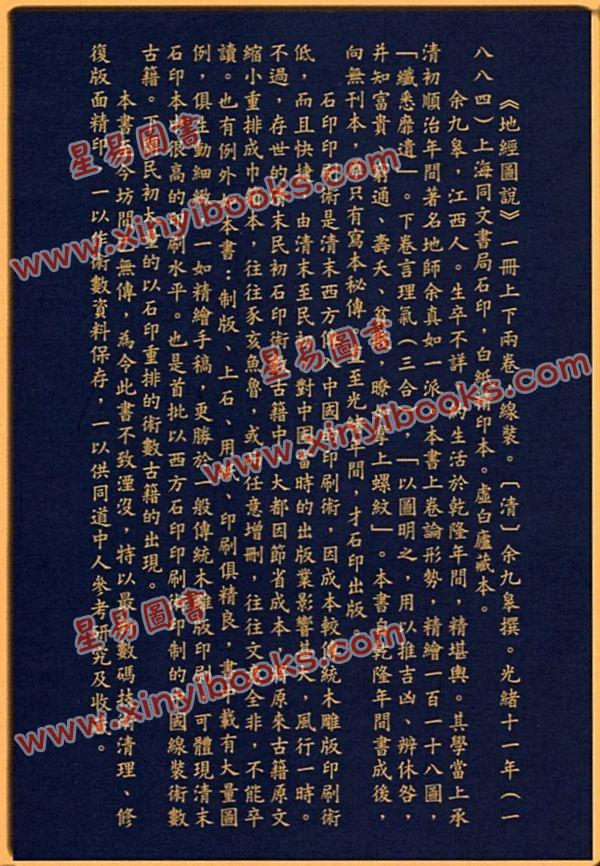 《地經圖說》一冊上下兩卷 線裝。〔清〕余九皋撰。光緒十一年（一
八八四）上海同文書局石印，白紙 印本。虛白廬藏本。
余九皋，江西人。生卒不詳 生活於乾隆年間，精堪輿。其學當上承
清初順治年間著名地師余真如一派 本書上卷論形勢，精繪一百一十八圖，
「纖悉靡遺」。下卷言理氣（三合 ，「以圖明之，用以推吉凶、辨休咎，
并知富貴 通、壽夭、 瞭 掌上螺紋」。本書自乾隆年間書成後，
向無刊本， 只有寫本秘傳 至光緒年間，才石印出版
石印印刷術是清末西方傳入中國的印刷術，因成本較傳統木雕版印刷術
低，而且快捷 由清末至民 對中國當時的出版業影響甚大，風行一時。
不過，存世的清末民初石印術數古籍中，大都因節省成本 原來古籍原文
縮小重排成巾 本，往往豕亥魚魯，或 任意增刪，往往文 全非，不能卒
讀。也有例外 本書：制版、上石、用 、印刷俱精良，書 載有大量圖
例，俱生動細緻 一如精繪手稿，更勝於一般傳統木雕版印刷 可體現清末
石印本 很高的印刷水平。也是首批以西方石印印刷術印制的中國線裝術數
古籍。 民初大 的以石印重排的術數古籍的出現。
本書 今坊間 無傳，為令此書不致湮沒，特以最 數碼技術清理、修
復版面精印 一以作術數資料保存，一以供同道中人參考研究及收藏。
星易圖書
www.xinyibooks.com
星易圖書
www.xinyibooks.com
星易圖書
www.xinyibooks.com